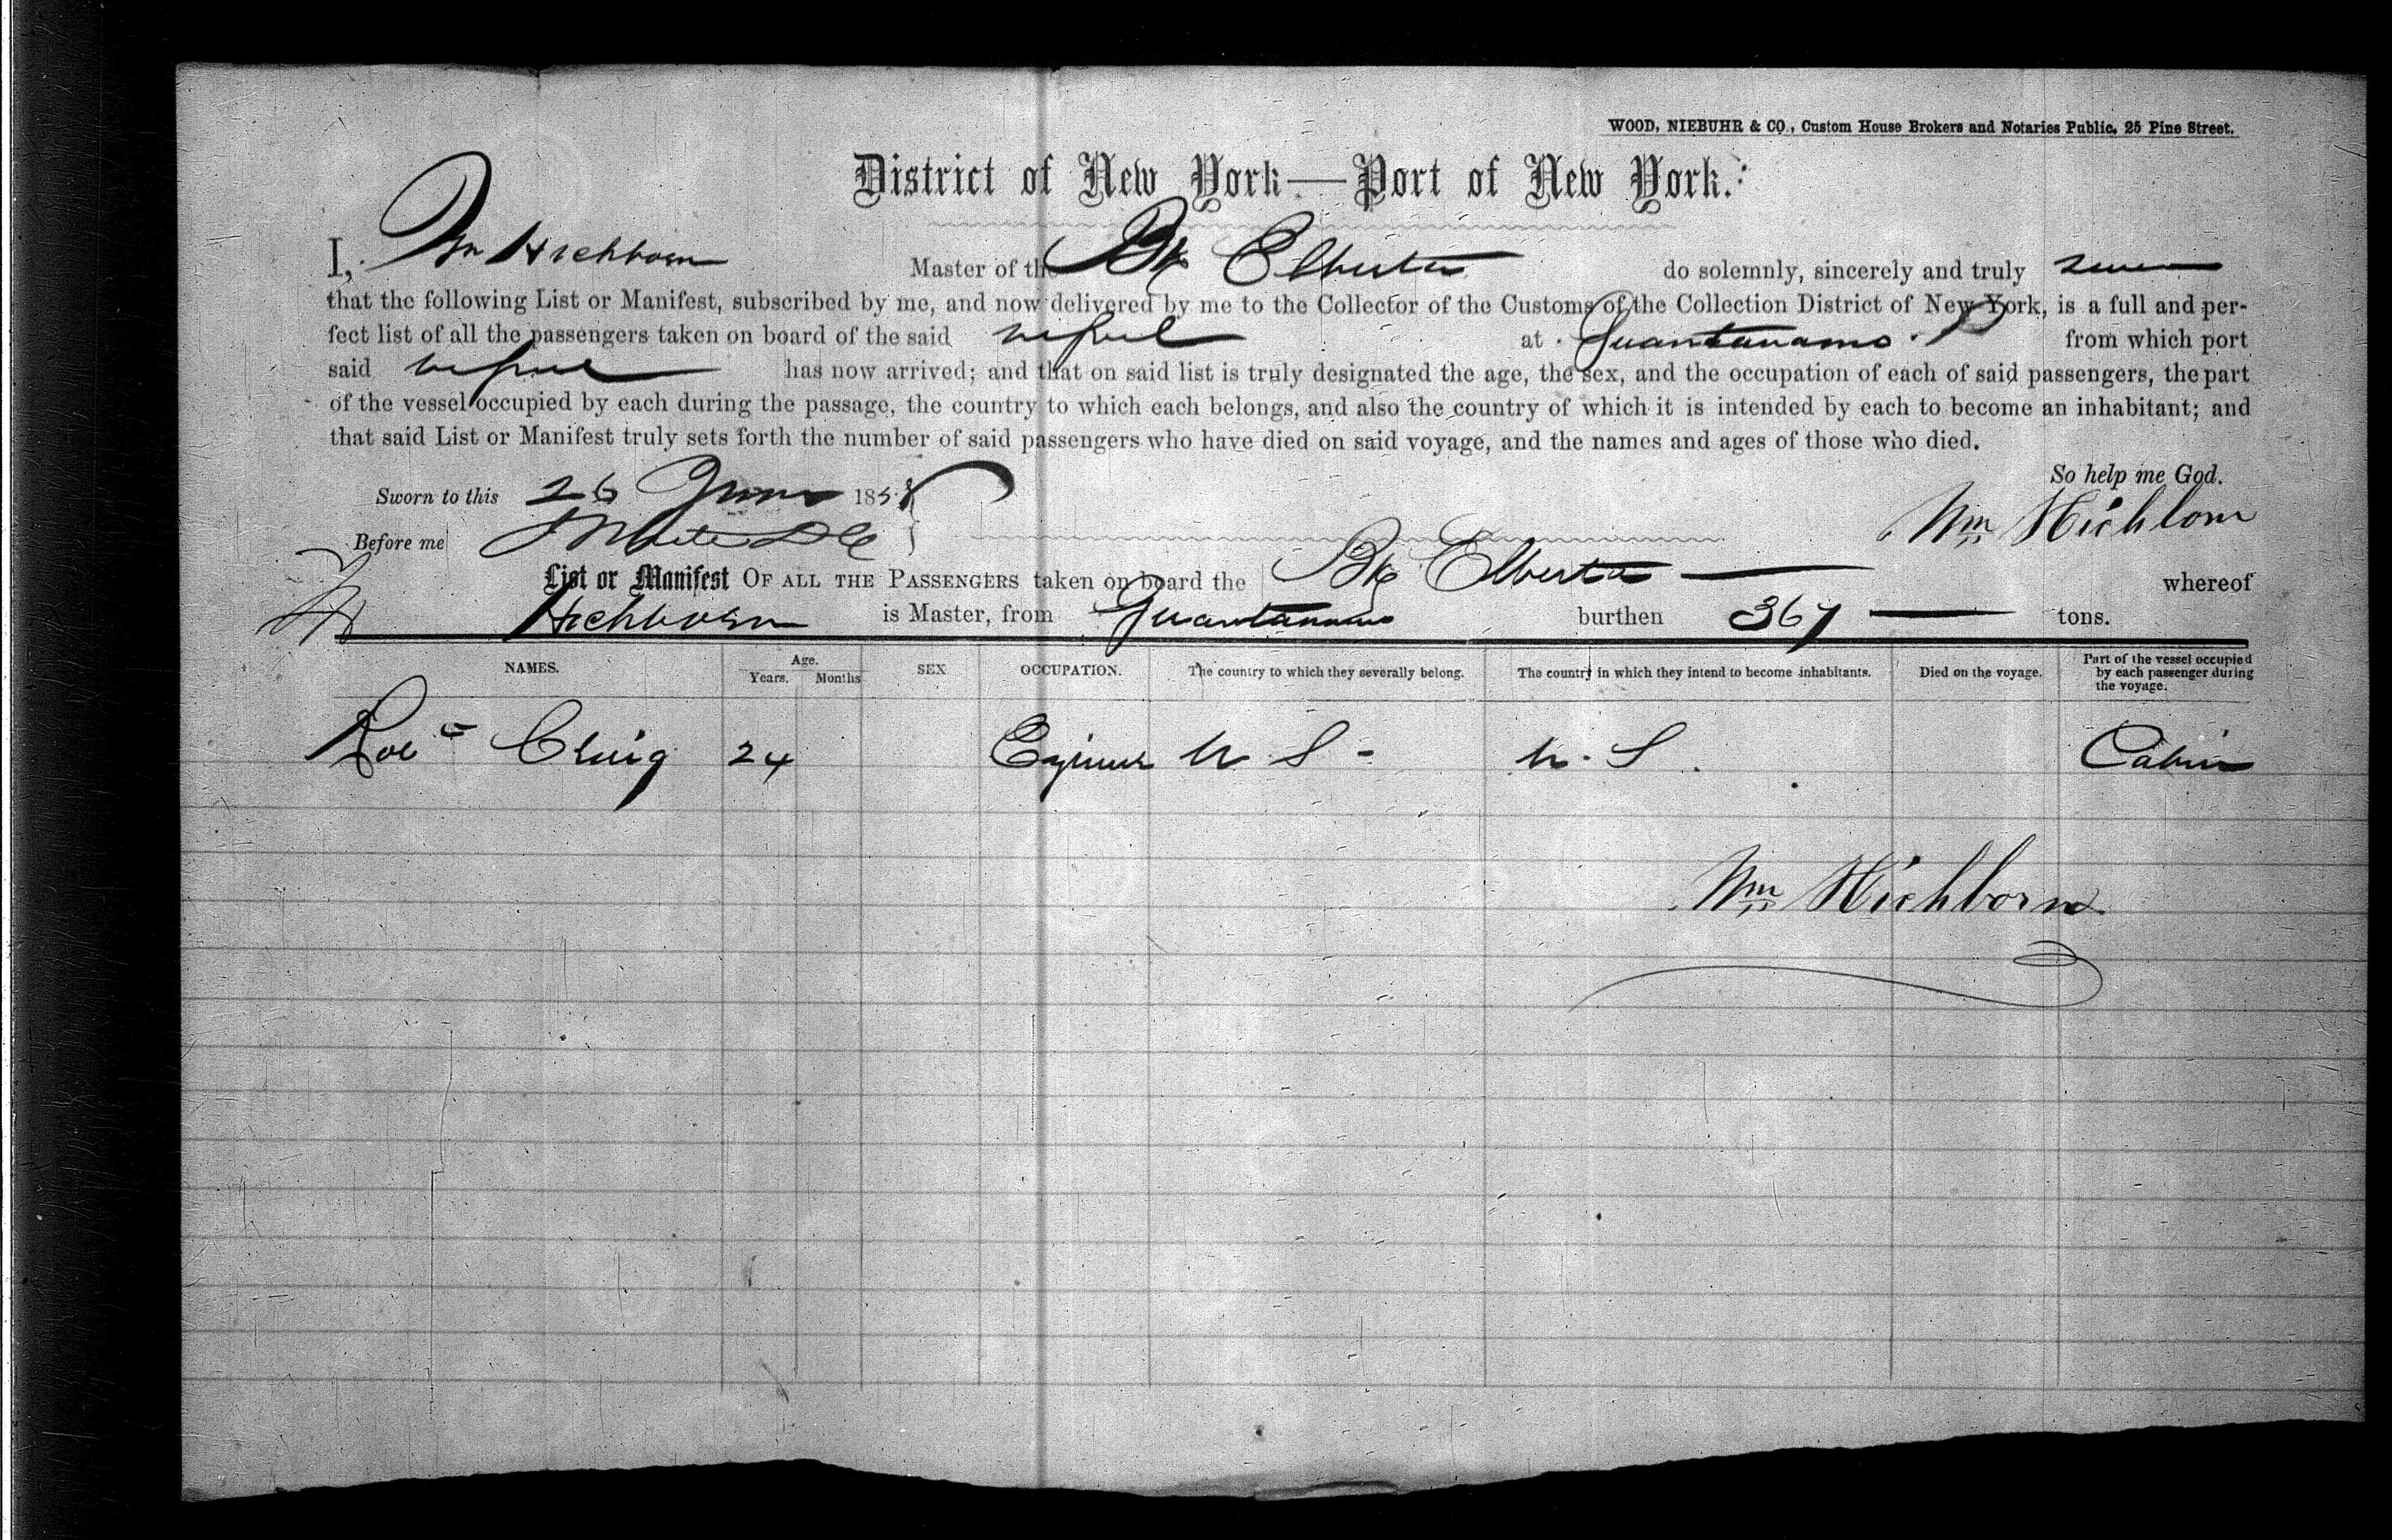 WOOD, NIEBUHR & CO., Custom House Brokers and Notaries Public, 25 Pine Street.
District of New York—Port of New York.
I, Wm Hichborn Master of the Bk Elberta do solemnly, sincerely and truly swear
that the following List or Manifest, subscribed by me, and now delivered by me to the Collector of the Customs of the Collection District of New York, is a full and per-
fect list of all the passengers taken on board of the said vessel at Guantanamo from which port
said vessel has now arrived; and that on said list is truly designated the age, the sex, and the occupation of each of said passengers, the part
of the vessel occupied by each during the passage, the country to which each belongs, and also the country of which it is intended by each to become an inhabitant; and
that said List or Manifest truly sets forth the number of said passengers who have died on said voyage, and the names and ages of those who died.
So help me God.
Sworn to this 26 June 185
Wm Hichborn
Before me
List or Manifest OF ALL THE PASSENGERS taken on board the Bk Elberta whereof
Hichborn is Master, from Guantanamo burthen 367 tons.
NAMES. Age. Years. Months SEX OCCUPATION. The country to which they severally belong. The country in which they intend to become inhabitants. Died on the voyage. Part of the vessel occupied by each passenger during the voyage.
24 U S U. S. Cabin
Wm Hichborn